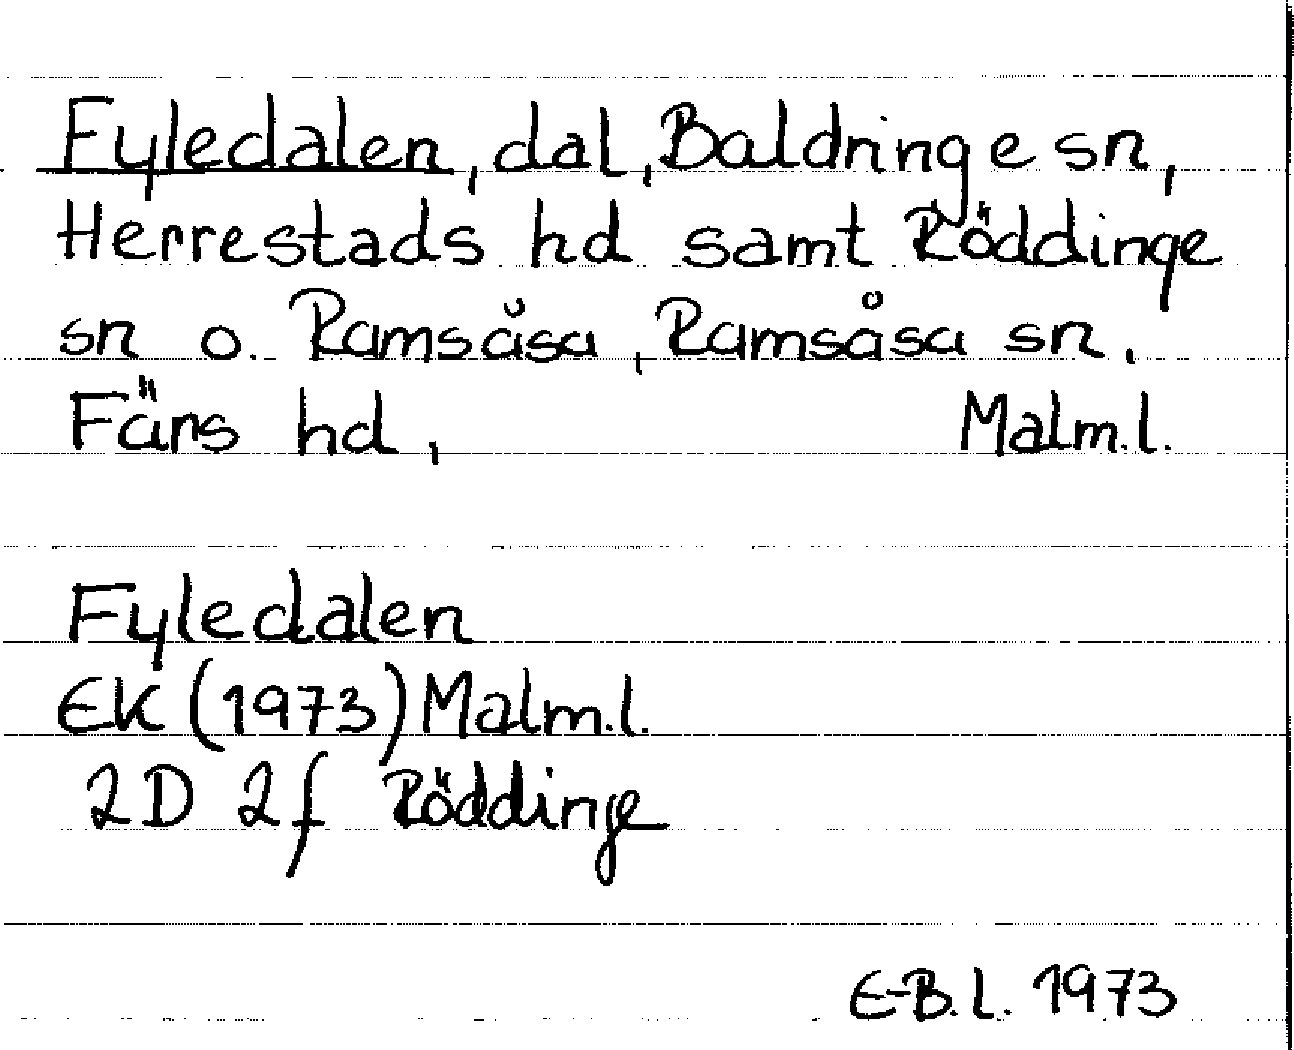 Fyledalen, dal, Baldringe sn,
Herrestads hd samt Röddinge
sn o. Ramsåsa, Ramsåsa sn.
Färs hd, Malm.l.
Fyledalen
EK (1973) Malm.l.
2D 2f Röddinge
E-B.L. 1973